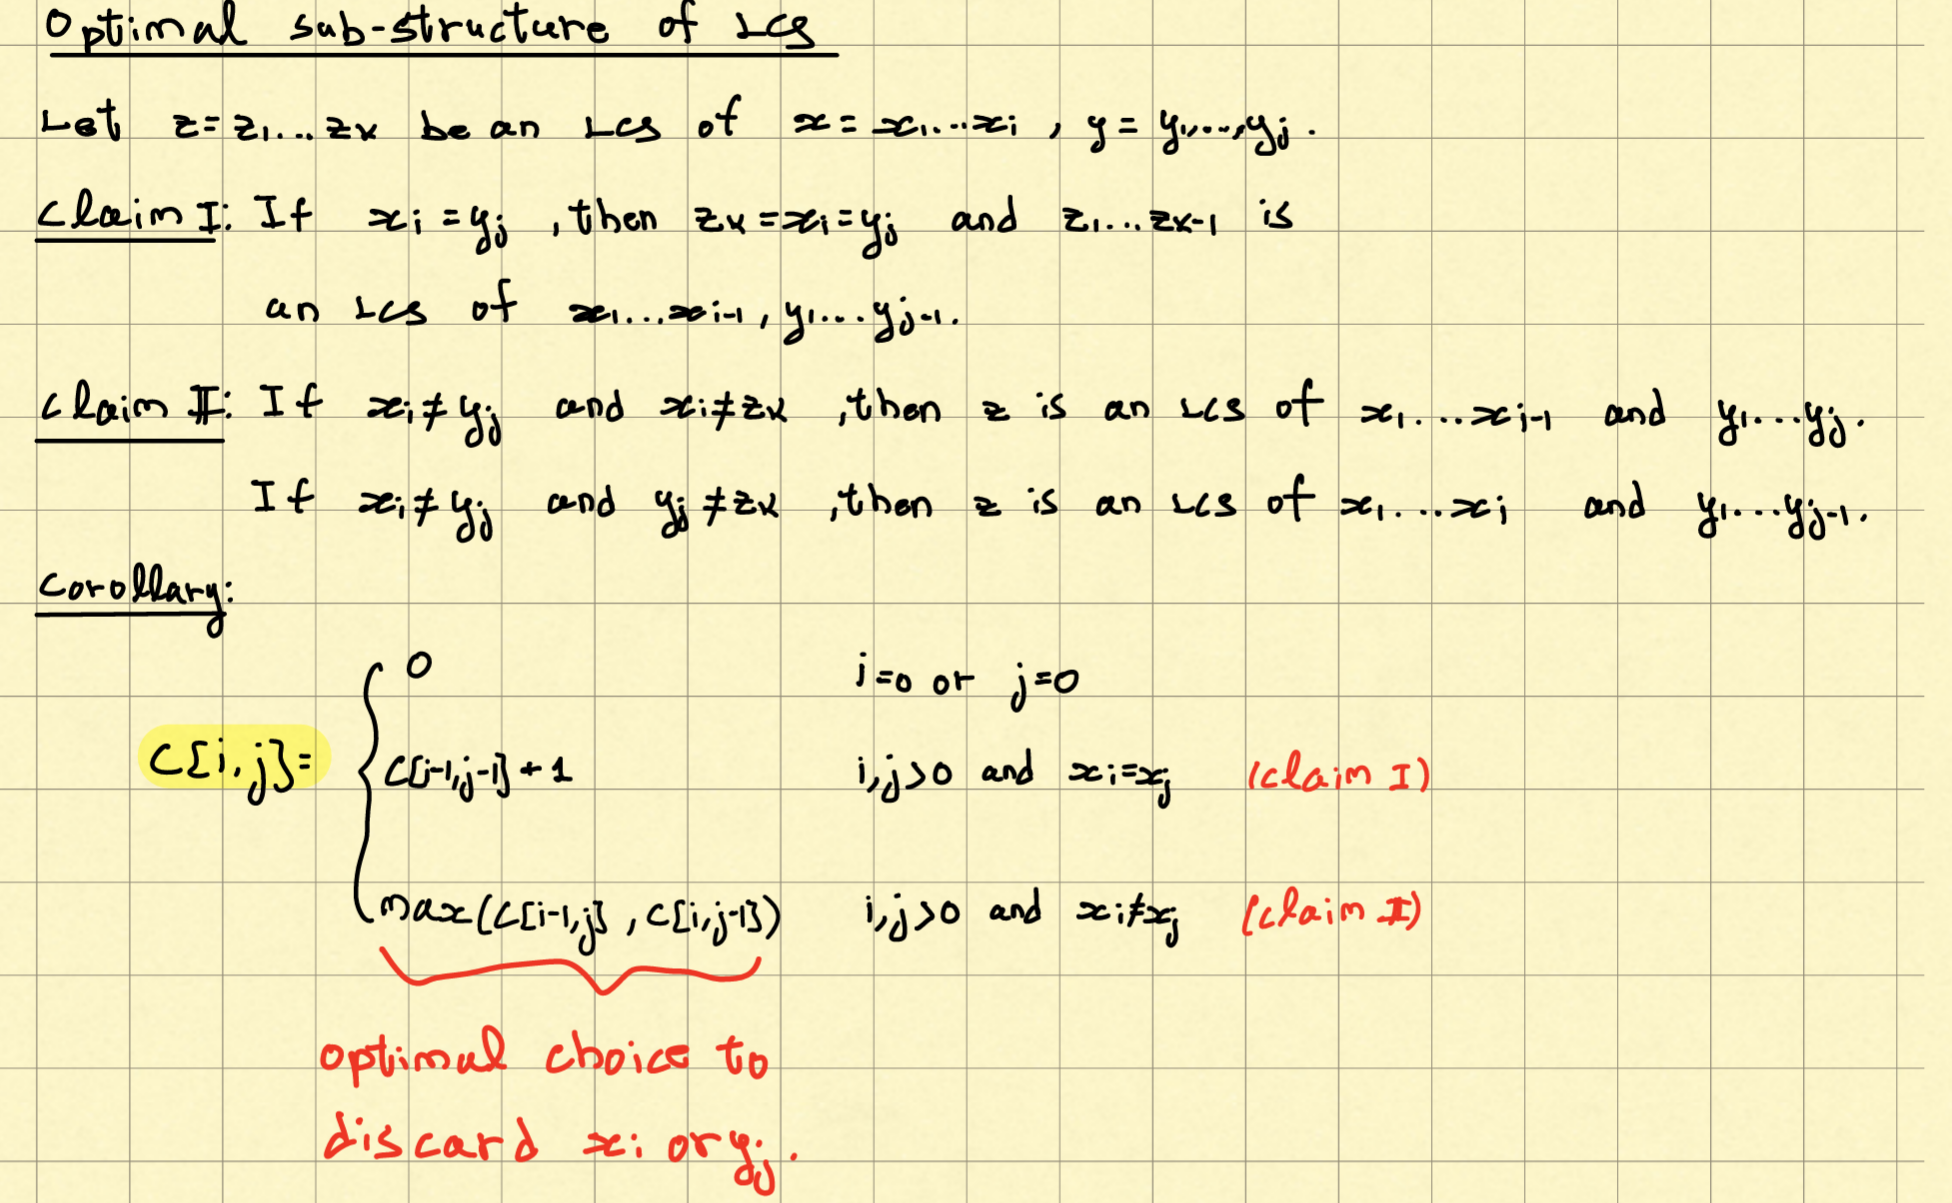 Optimal sub-structure of LCS
Let z=z1...zk be an LCS of x=x1...xi , y=y1,...,yj.
Claim I: If xi=yj ,then zk=xi=yj and z1...zk-1 is
an LCS of x1...xi-1, y1...yj-1.
Claim II: If xi≠yj and xi≠zk ,then z is an LCS of x1...xi-1 and y1...yj.
If xi≠yj and yj≠zk ,then z is an LCS of x1...xi and y1...yj-1.
Corollary:
0 i=0 or j=0
C[i,j]= C[i-1,j-1]+1 i,j>0 and xi=xj (Claim I)
max(C[i-1,j] , C[i,j-1]) i,j>0 and xi≠xj (Claim II)
optimal choice to
discard xi or yj.